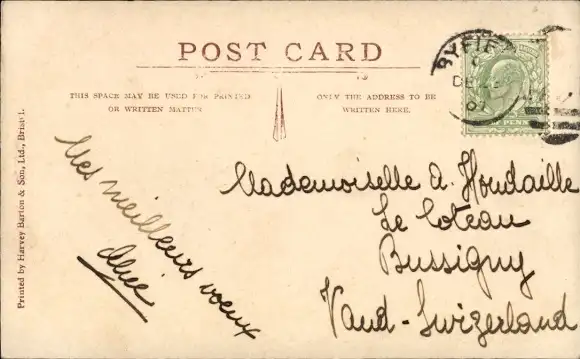 POST CARD
THIS SPACE MAY BE USED FOR PRINTED
OR WRITTEN MATTER
ONLY THE ADDRESS TO BE
WRITTEN HERE.
Printed by Harvey Barton & Son, Ltd., Bristol.
Mes meilleurs voeux
Alice
Mademoiselle A. Houtaille
Le Coteau
Bussigny
Vaud - Swizerland
DE
07
PENNY